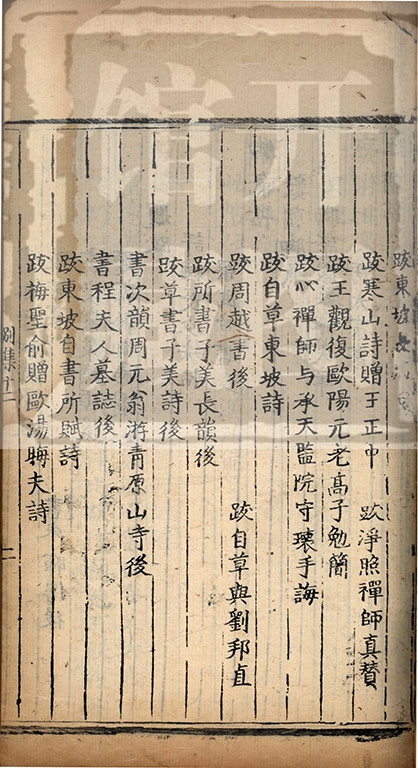 跋東坡
跋寒山詩贈王正中　跋淨照禪師真贊
跋王觀復歐陽元老高子勉簡
跋心禪師与承天監院守瓌手誨
跋自草東坡詩
跋周越書後　跋自草與劉邦直
跋所書子美長韻後
跋草書子美詩後
書次韻周元翁游青原山寺後
書程夫人墓誌後
跋東坡自書所賦詩
跋梅聖俞贈歐湯晦夫詩
別集十二
二